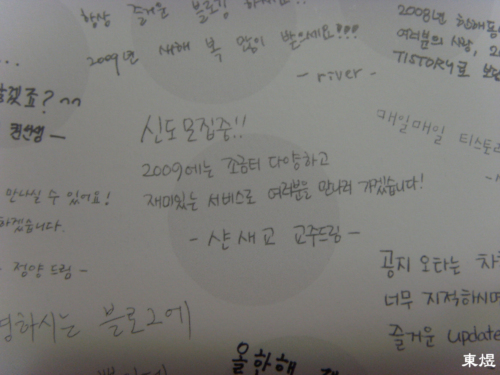 항상 즐거운 블로깅 하세요!!
2009년 새해 복 많이 받으세요!!!
- river -
2008년 한해동
여러분의 사랑, 2
TISTORY로 보답
겠죠? ^^
신도모집중!!
2009에는 조금더 다양하고
재미있는 서비스로 여러분을 만나러 가겠습니다!
- 샨새교 교주드림 -
매일매일 티스토리
만나실 수 있어요!
하겠습니다.
- 정양 드림 -
공지 오타는 차
너무 지적하시며
즐거운 update
영하시는 블로그에
올 한해
東煜